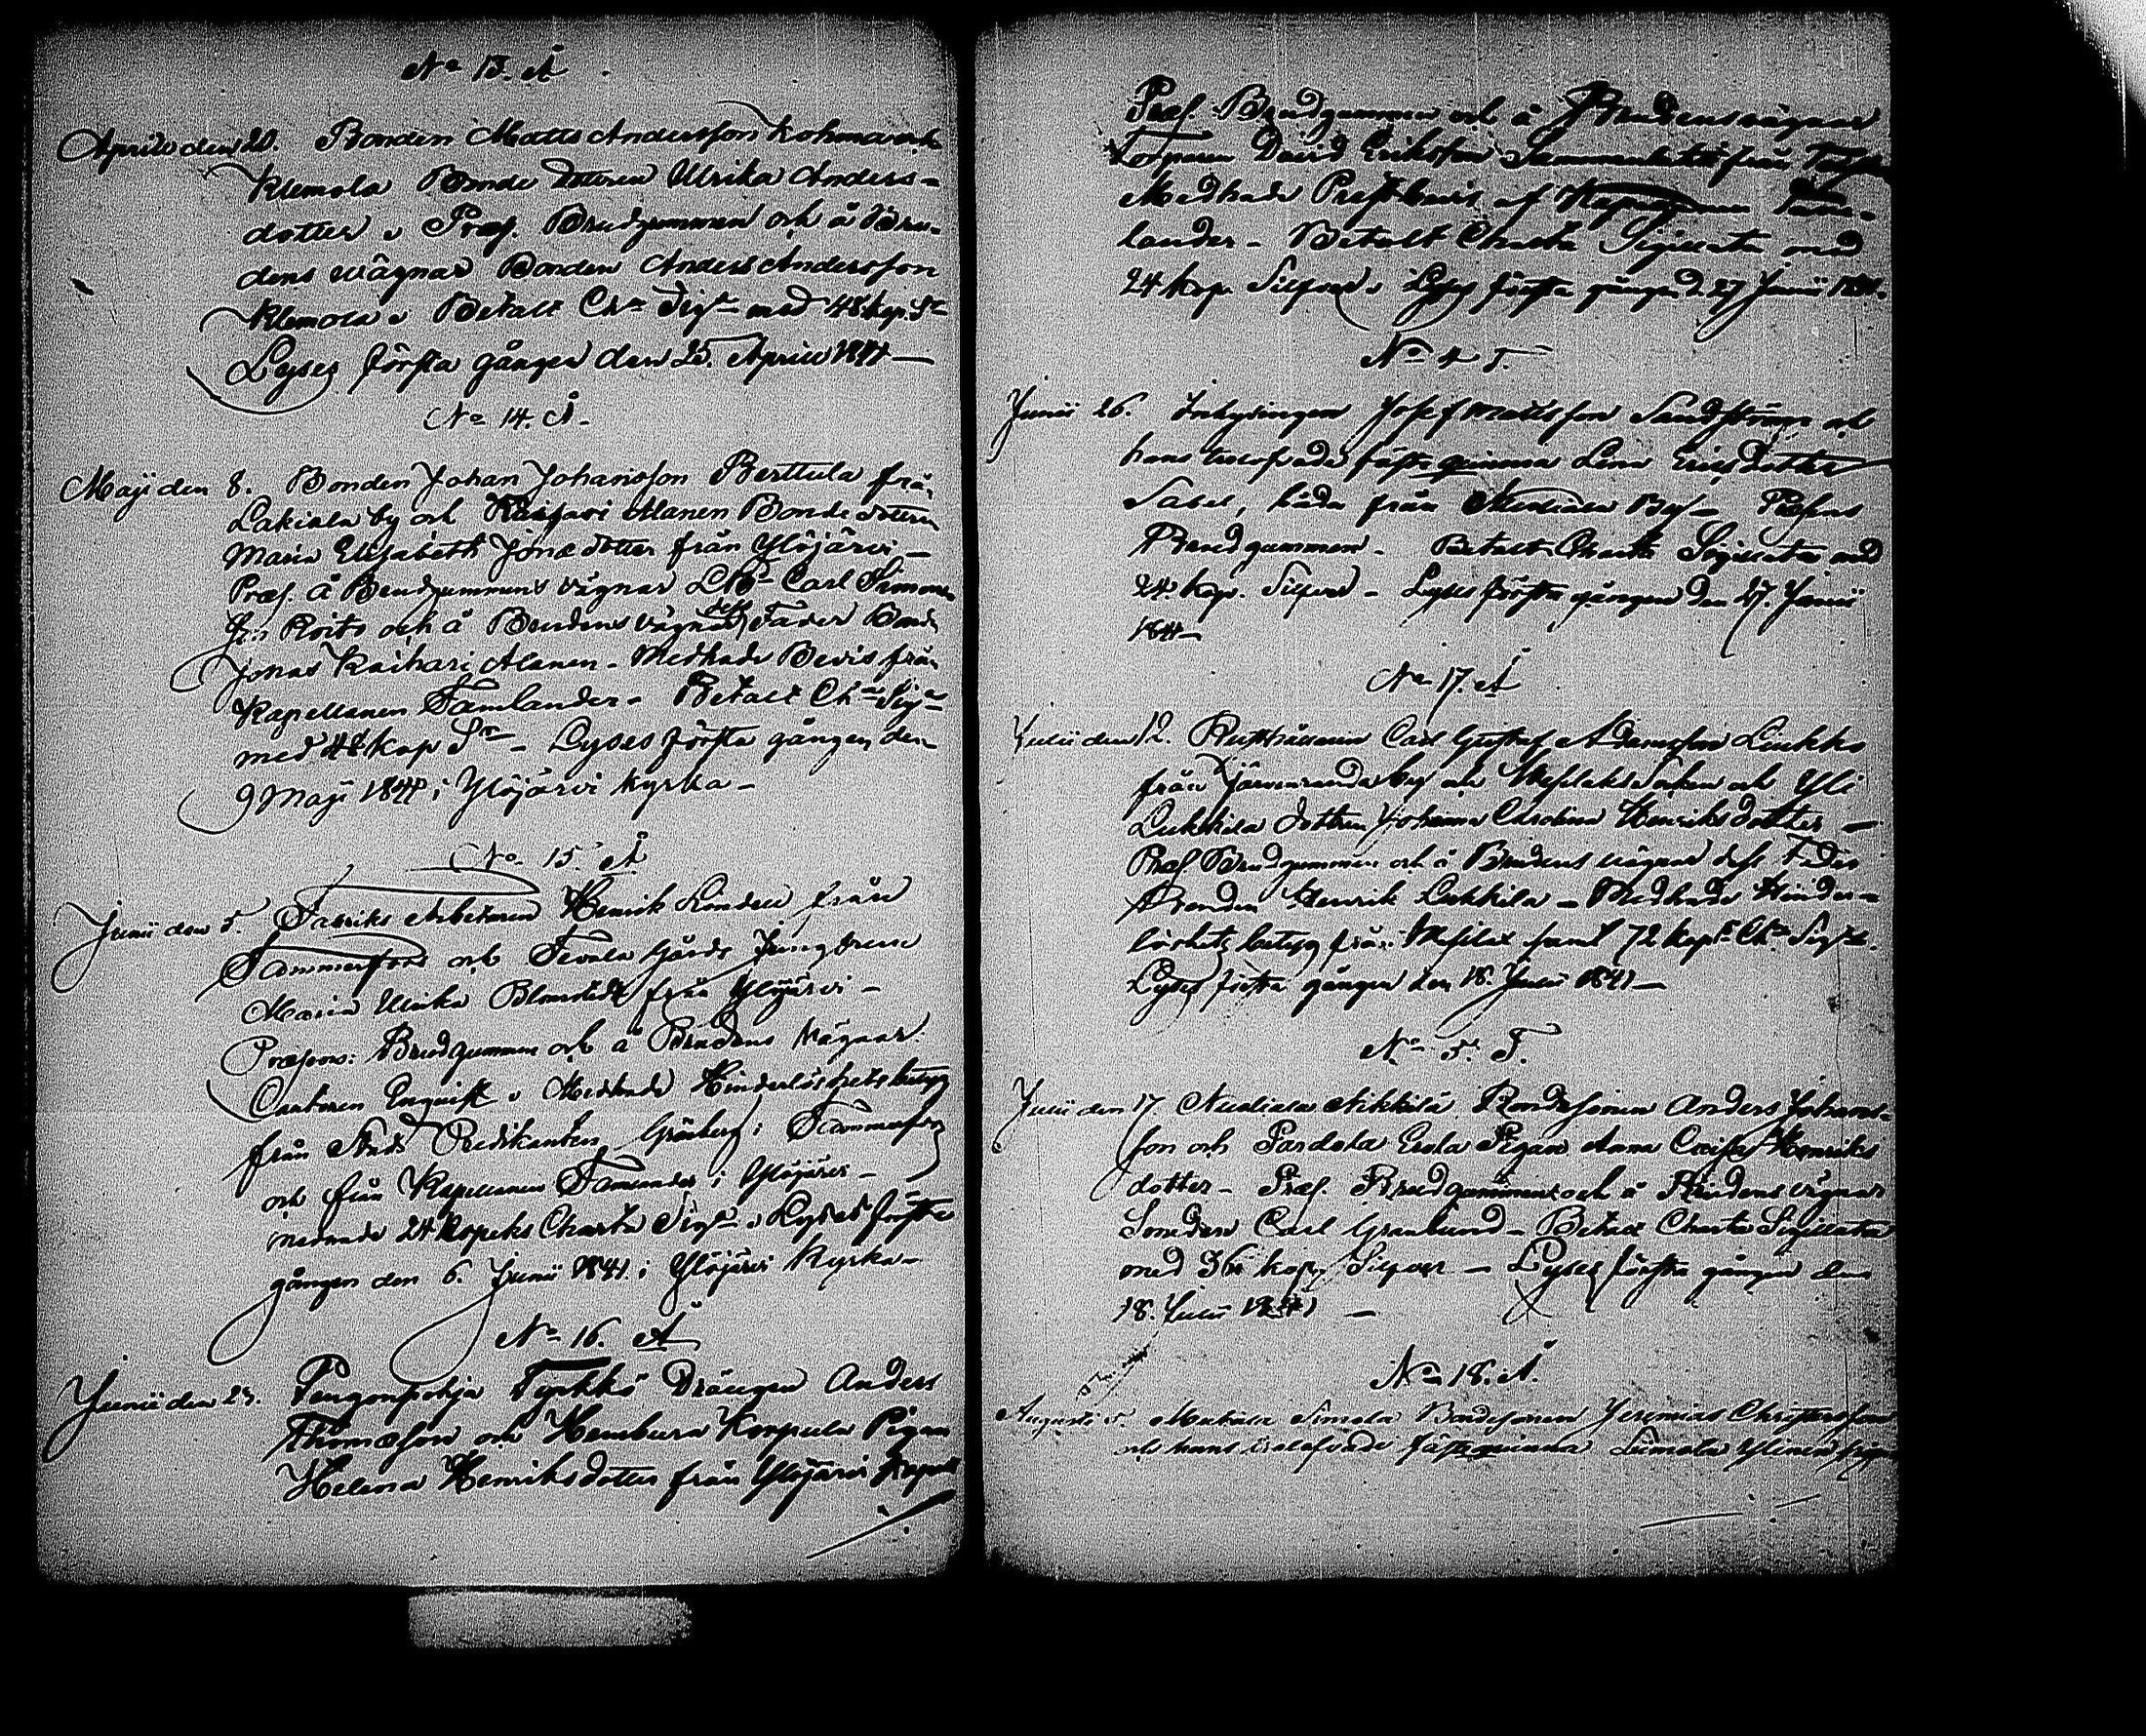 No 13. Å
Aprill den 20. Bonden Matts Andersson Kohmansk
Klemola Bonde Dottren Ulrika Anders-
dotter, Præs. Brudgummen och å Bru-
dens wägnar Bonden Anders Andersson
Klemola, Betalt Cha Siga med 48 kop. Sr
Lyses första gången den 25. April 1841
No 14. Å
Maji den 8. Bonden Johan Johansson Berttula från
Lakiala by och Alanen Bonde dottren
Maria Elisabeth Jonædotter från Ylöjärvi
Præs. å Brudgummens vägnar Carl Simons
son Roito och å Brudens vägnar dess Fader Bonden
Jonas Kaihari Alanen - Medhade Bevis från
Kapellanen Tamlander - Betalt Cha Siga
med 48 kop Sr - Lyses första gången den
9 Maji 1841 i Ylöjärvi kyrka -
No 15. Å
Junii den 5. Fabriks Arbetaren Henrik Londen från
Tammerfors och Gårds Jungfrun
Maria Ulrika Blomstedt från Ylöjärvi -
Præsens: Brudgummen och å Brudens Vägnar
Cantoren Enqvist, Medhade Hinderlöshets betyg
från Stads Predikanten Grönberg i Tammerfors
och från Kapellanen Tamlander i Ylöjärvi -
medhade 24 Kopeks Charta Siga, Lyses första
gången den 6. Junii 1841 i Ylöjärvi Kyrka -
No 16. Å
Junii den 23. Pengonpohja Tyrkkö Drängen Anders
Thomæson och Korpula Pigan
Helena Henriksdotter från Ylöjärvi Kapell
Præs. Brudgummen och å Brudens vägnar
David Eriksson från
Medhade Prestbevis af Kapellanen Tam-
lander - Betalt Charta Sigillata med
24 kop. Silfver, Lyses första gången d. 27 Junii 1841.
No 4 T.
Junii 26. Inhysingen Josef Mattsson Sandström och
hans trolofvade fästeqvinna Lena Ericsdotter
Sabel, båda från By - Præsens
Brudgummen - Betalt Charta Sigillata med
24 kop. Silfver - Lyses första gången den 27. Junii
1841
No 17. Å
Julii den 12. Rusthållaren Carl Gustaf Adamsson Liukko
från by och Messuby Socken och Yli
Lukkila dottren Johanna Carolina Henriksdotter -
Præs Brudgummen och å Brudens vägnar dess Fader
Bonden Henrik Lukkila - Medhade Hinder-
löshets betyg från samt 72 kop Sr Cha Siga.
Lyses första gången den 18. Julii 1841 -
No 5. T.
Julii den 17. Nikkilä Bondesonen Anders Johans-
son och Pardala Erola Pigan Anna Caisa Henriks
dotter - Præs. Brudgummen och å Brudens vägnar
Carl Granlund - Betalt Charta Sigillata
med 36 kop. Silfver - Lyses första gången den
18. Julii 1841 -
No 18. Å.
Augusti Simola Bondesonen Jeremias Christersson
och hans trolofvade fästeqvinna